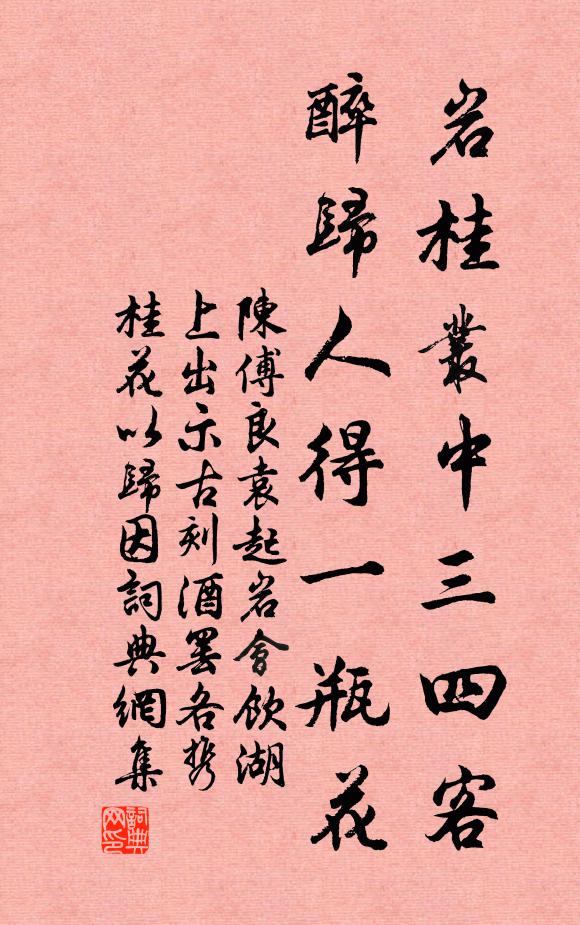 岩桂叢中三四客
醉歸人得一瓶花
陳傅良袁起岩會飲湖
上出示古刻酒罢各携
桂花以歸因詞典網集
詞典
网印